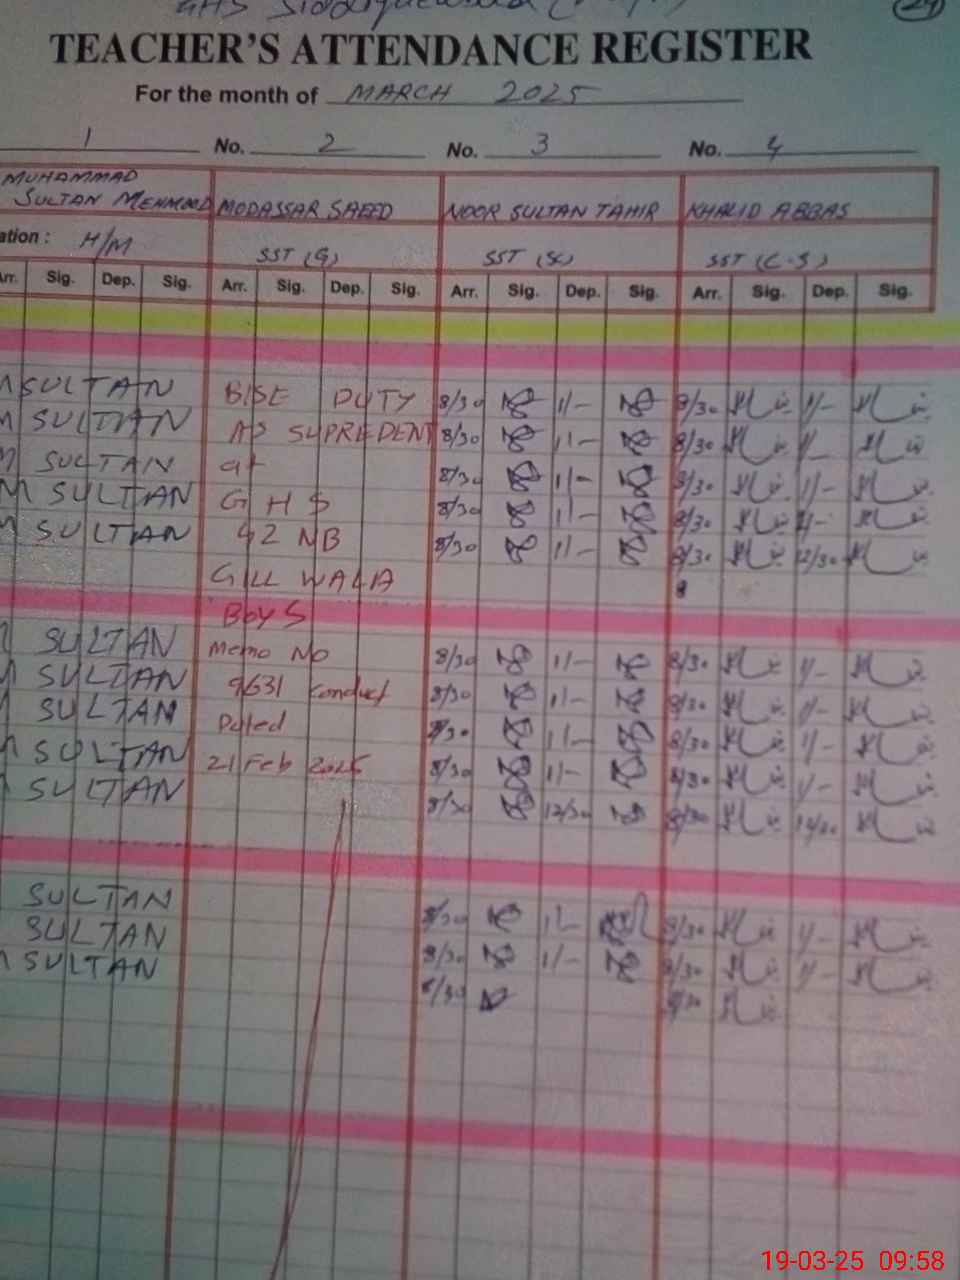 GHS
TEACHER'S ATTENDANCE REGISTER
For the month of MARCH 2025
1 No. 2 No. 3 No. 4
MUHAMMAD
SULTAN MEHMOOD MODASSAR SAEED NOOR SULTAN TAHIR KHALID ABBAS
ation : H/M SST (G) SST (SC) SST (C-S)
Arr. Sig. Dep. Sig. Arr. Sig. Dep. Sig. Arr. Sig. Dep. Sig. Arr. Sig. Dep. Sig.
M SULTAN BISE DUTY 8/30 1/- 8/30 1/-
M SULTAN AS SUPREDENT 8/30 1/- 8/30 1/-
M SULTAN at 8/30 1/- 8/30 1/-
M SULTAN G H S 8/30 1/- 8/30 1/-
M SULTAN 42 NB 8/30 1/- 8/30 12/30
GILL WALA
Boys
M SULTAN Memo No 8/30 1/- 8/30 1/-
M SULTAN 9631 Conduct 8/30 1/- 8/30 1/-
M SULTAN Dated 8/30 1/- 8/30 1/-
M SULTAN 21 Feb 2025 8/30 1/- 8/30 1/-
M SULTAN 8/30 12/30 8/30 12/30
SULTAN 8/30 1/- 8/30 1/-
SULTAN 8/30 1/- 8/30 1/-
M SULTAN 8/30 8/30
19-03-25 09:58